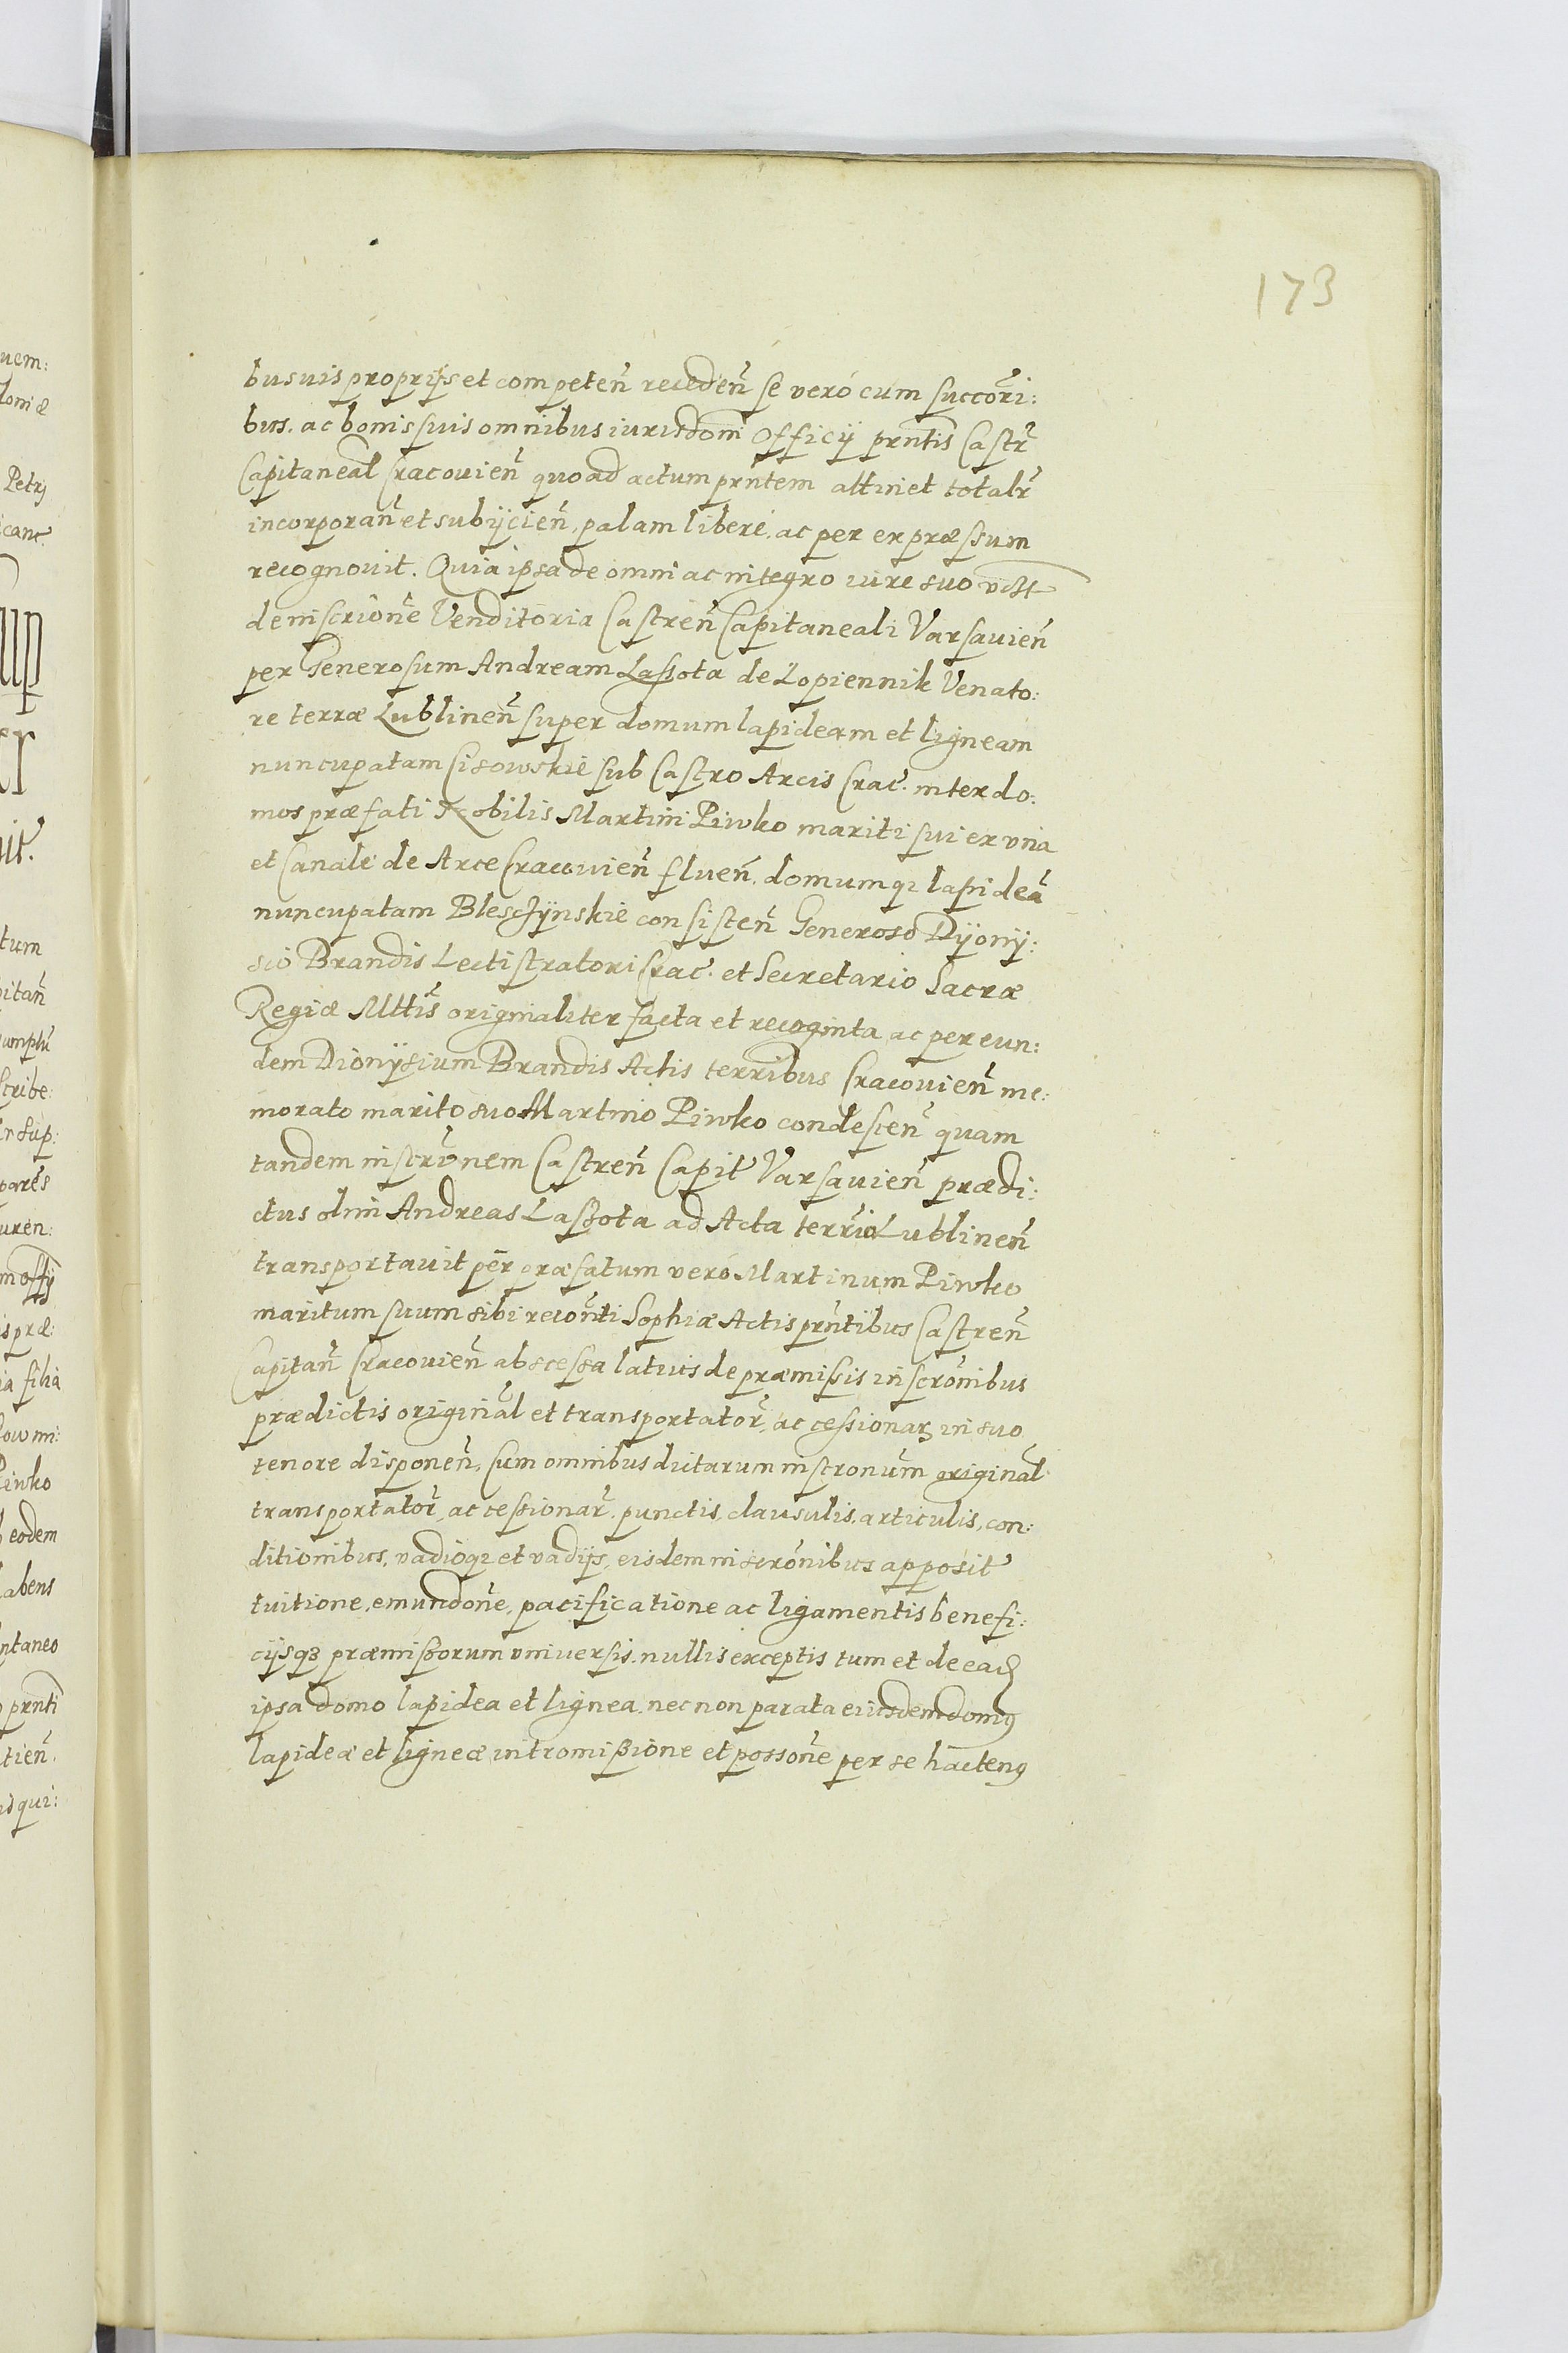 173
busuis proprijs et competeñ recedeñ se veró cum succõri:
bus. ac bonis suis omnibus iurisdoni Officij prntis Castr̃
Capitaneal Cracouieñ quo ad actum prntem attinet totalr̃
incorporañ et subijcieñ, palam liberé. ac per expræssum
recognouit. Quia ipsa de omni ac integro iure suo
de inscrione Venditoria Castreñ Capitaneali Varsauieñ
per Generosum Andream Lassota de Lopiennik Venato:
re terræ Lublineñ super domum lapideam et ligneam
nuncupatam Cisowskie sub Castro Arcis Crac. inter do:
mos præfati Nobilis Martini Piwko mariti sui ex vna
et Canale de Arce Cracouieñ flueñ. domumq₂ lapideã
nuncupatam Blesczÿnskie consisteñ Generoso Dÿonÿ:
sio Brandis Lectistratori Crac. et Secretario Sacræ
Regiæ Mttis originaliter facta et recoginta ac per eun:
dem Dionÿsium Brandis Actis terribus Cracouieñ me:
morato marito suo Martino Piwko condesceñ quam
tandem inscrõnem Castreñ Capit Varsauieñ prædi:
ctus olim Andreas Lassota ad Acta terria Lublineñ
transportauit per præfatum veró Martinum Piwko
maritum suum sibi recoñti Sophiæ Actis prñtibus Castreñ
Capitañ Cracouieñ abscessa latius de præmissis inscrõnibus
prædictis original et transportator̃, ac cessionar in suo
tenore disponeñ, Cum omnibus dictarum inscronum original
transportator̃, ac cessionar̃. punctis, clausulis, articulis, con:
ditionibus, vadioq₂ et vadijs, eisdem inscrónibus apposit
tuitione, emundoñe, pacificatione ac ligamentis benefi:
cijsqȝ præmissorum vniuersis. nullis exceptis tum et de ead
ipsa domo lapidea et lignea. nec non parata eiusdem domꝰ
lapideæ et ligneæ intromissione et possoñe per se hactenꝰ